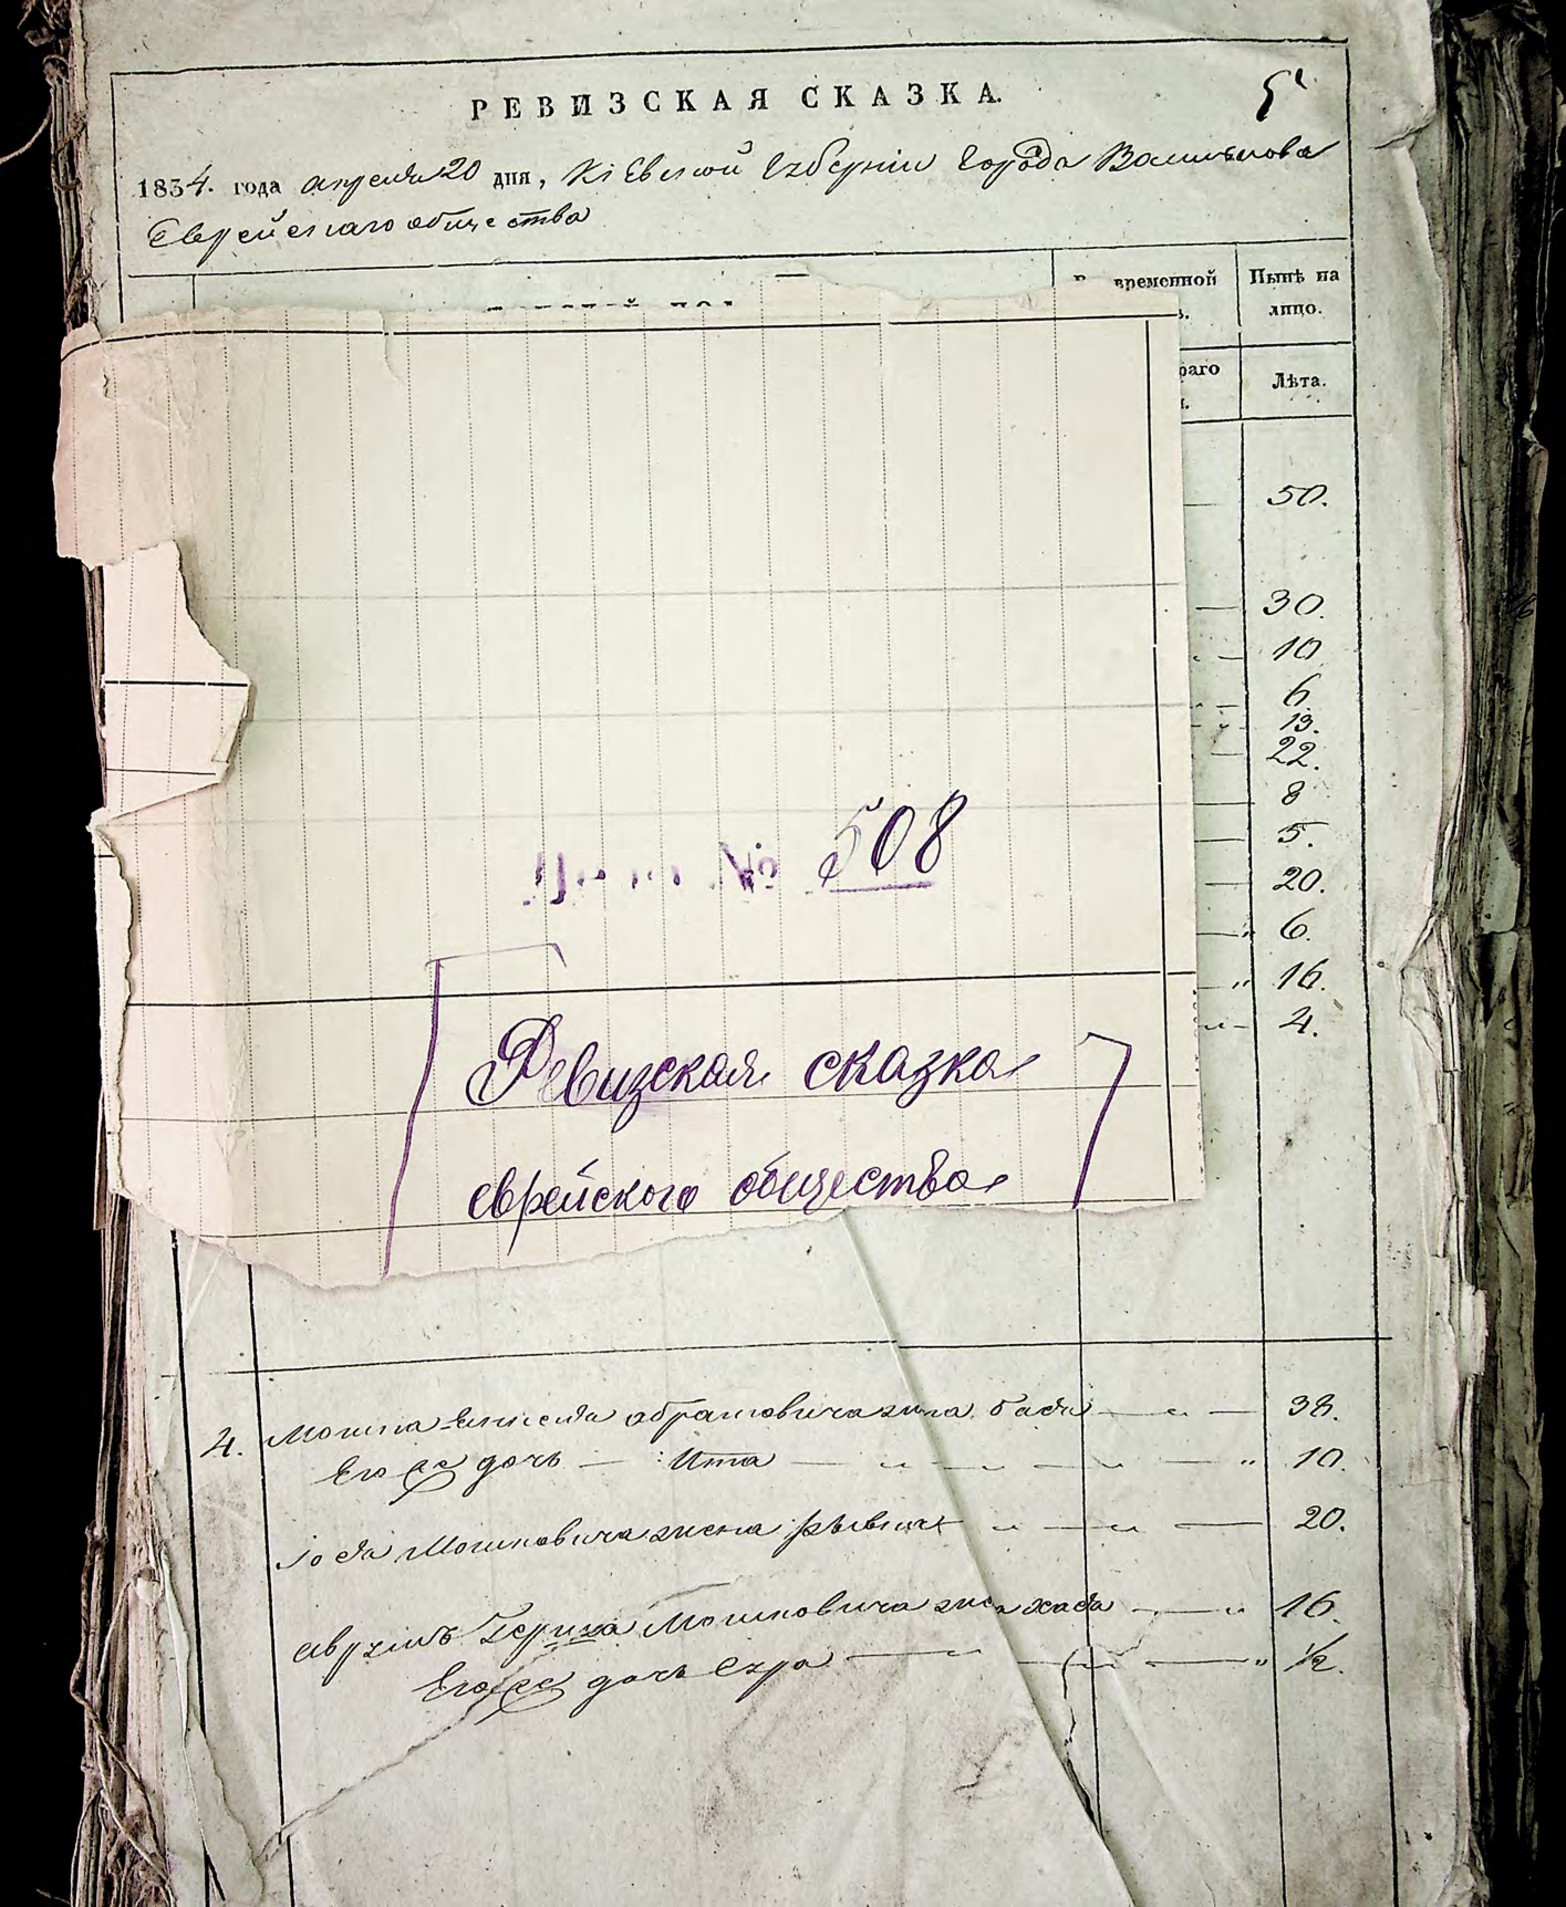 РЕВИЗСКАЯ СКАЗКА.
5
1834. года апреля 20 дня, Кіевской Губерніи Города Василькова
Еврейскаго общества
временной
Нынѣ на
лицо.
раго
Лѣта.
50.
30.
10
6.
13.
22.
8
5.
20.
6.
16.
4.
№ 508
Ревизская сказка
еврейского общества
4. Мошка абрамовича жена бася 38.
Его же дочь Ита 10.
Мошковича жена рывка 20.
Мошковича хая 16.
Его же дочь сура 1/2.